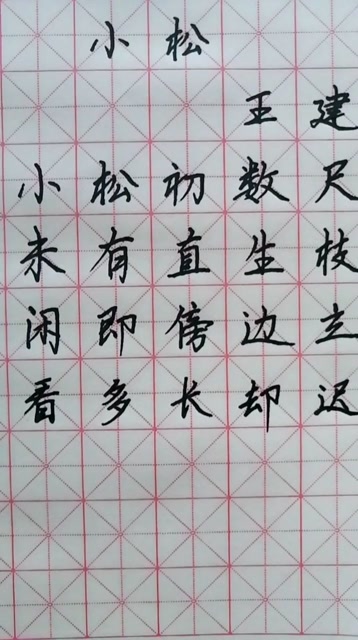 小松
王建
小松初数尺
未有直生枝
闲即傍边立
看多长却迟